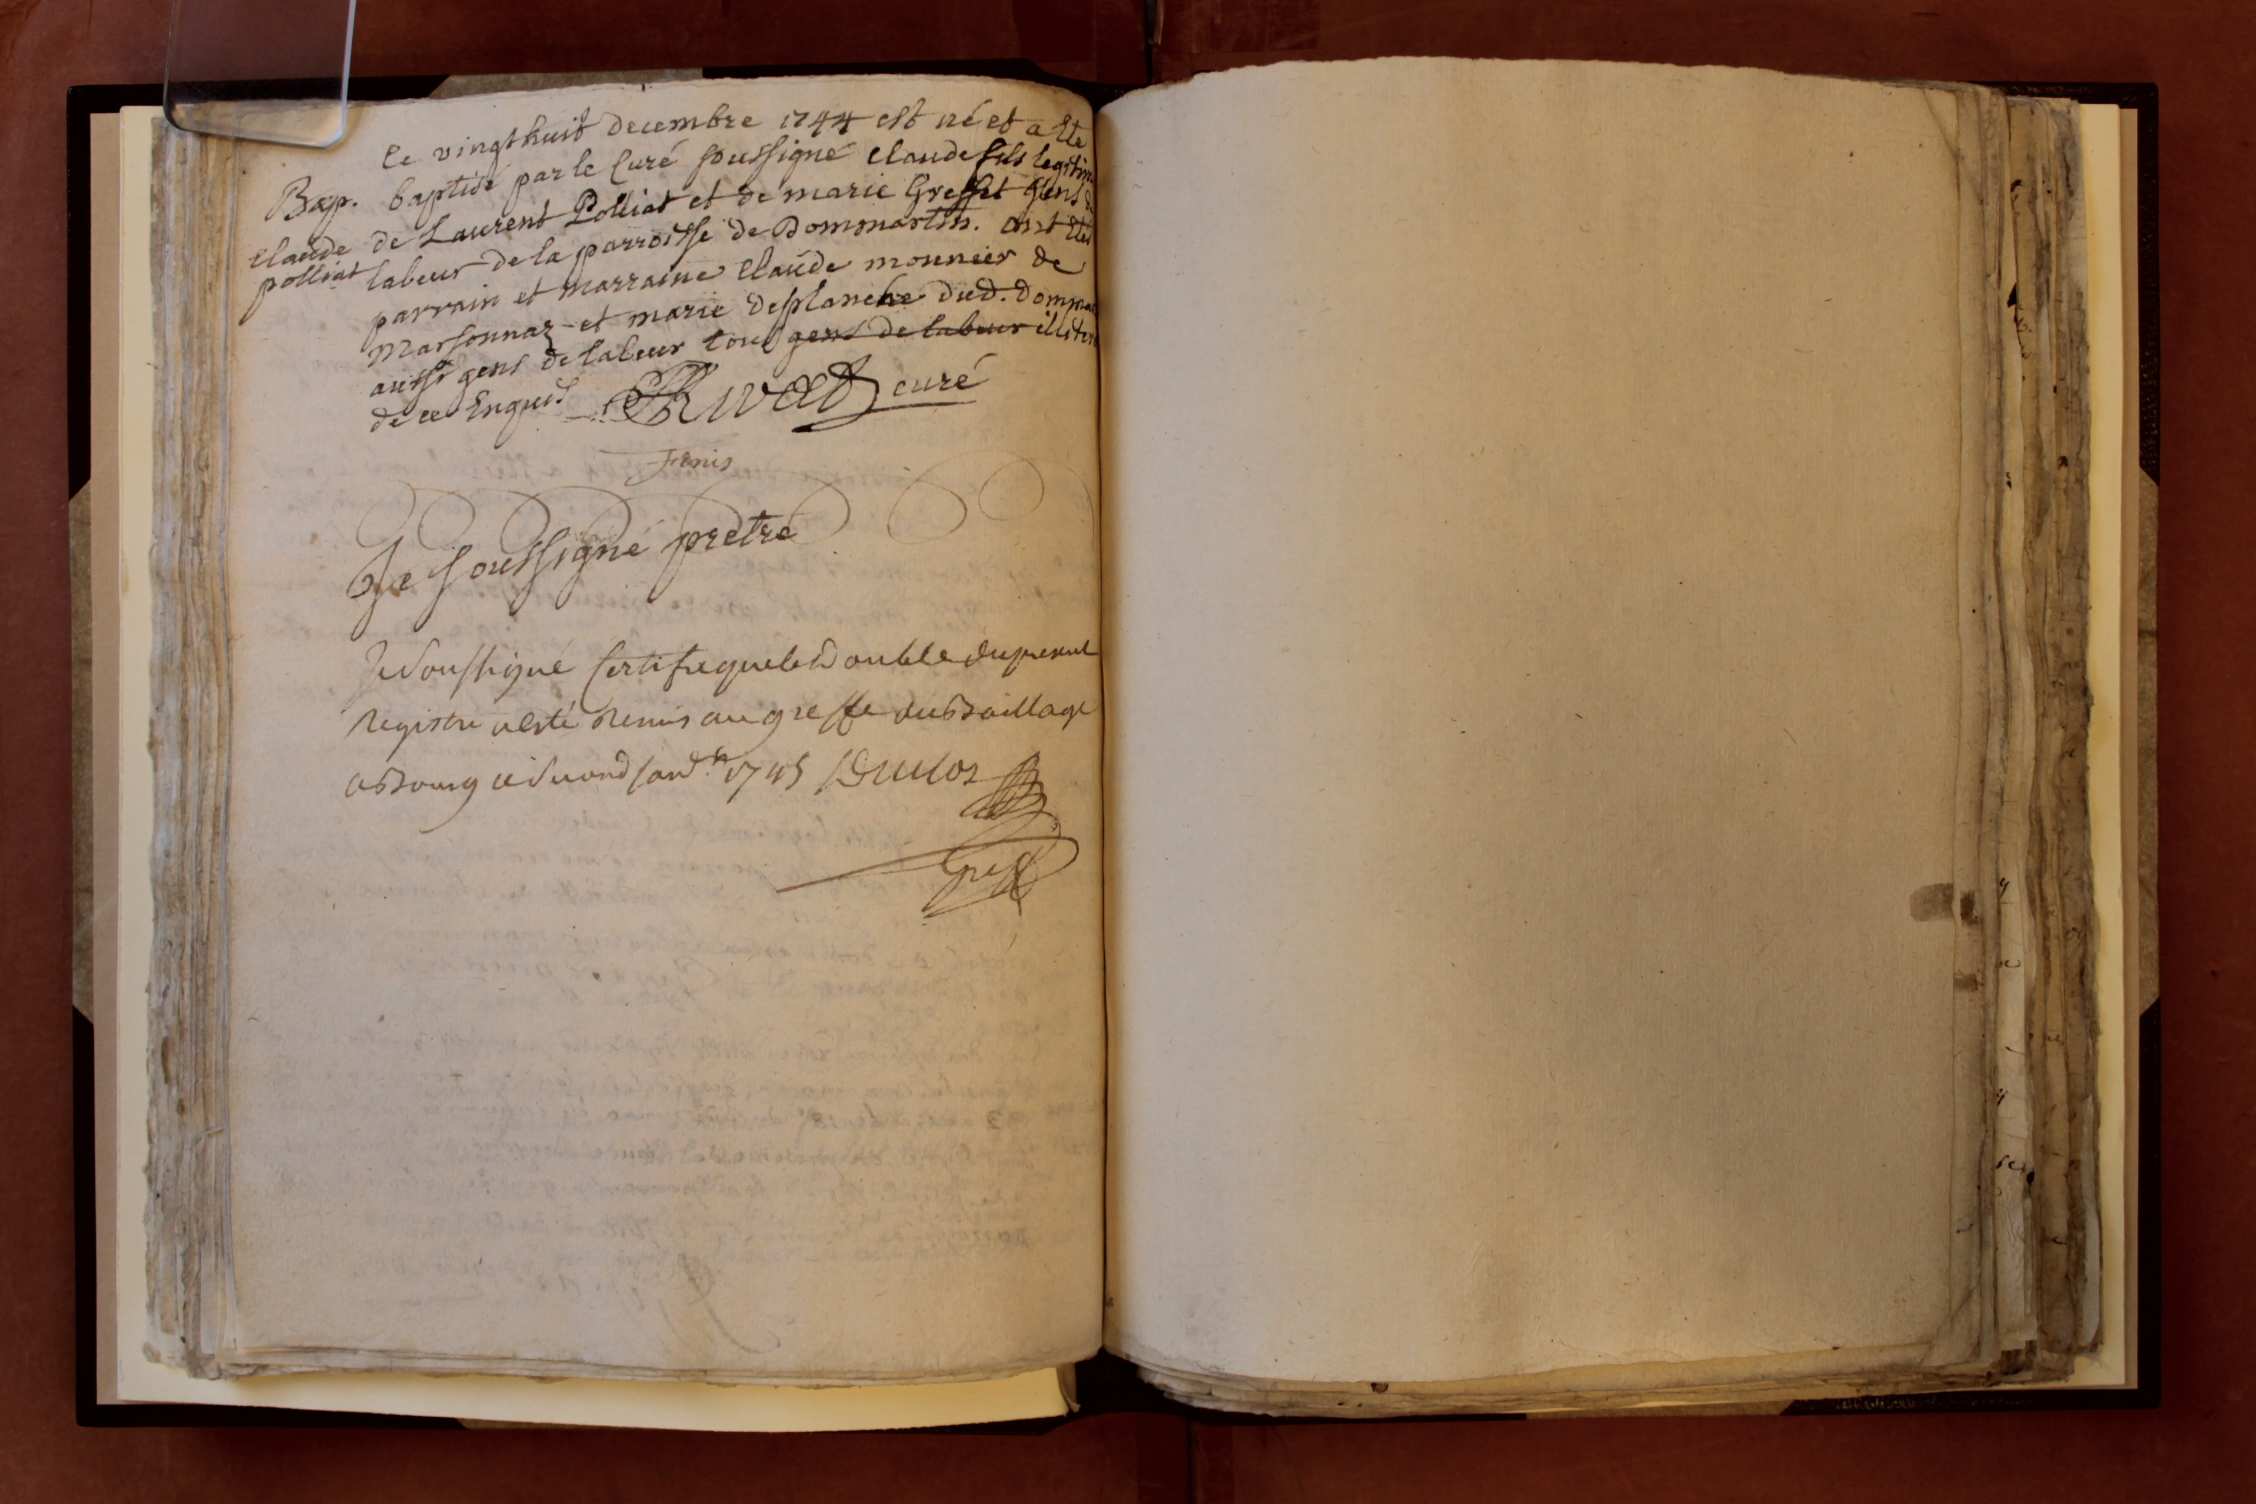 Le vingt huit decembre 1744 est né et a été
Bap. baptisé par le Curé soussigné claude fils legitim
claude de Laurent Polliat et de marie Greffet gens de
polliat labeur de la parroisse de Dommartin. ont étés
parrain et marraine Claude monnier de
Marsonnaz et marie desplanche dud. dommar
aussi gens de labeur tous gens de labeur illiterés
de ce Enquis Rivat curé
Finis
Je soussigné pretre
Je Soussigné Certifie que le Double du present
Registre a esté Remis au greffe du Bailliage
a Bourg ce Second 1745
Greff